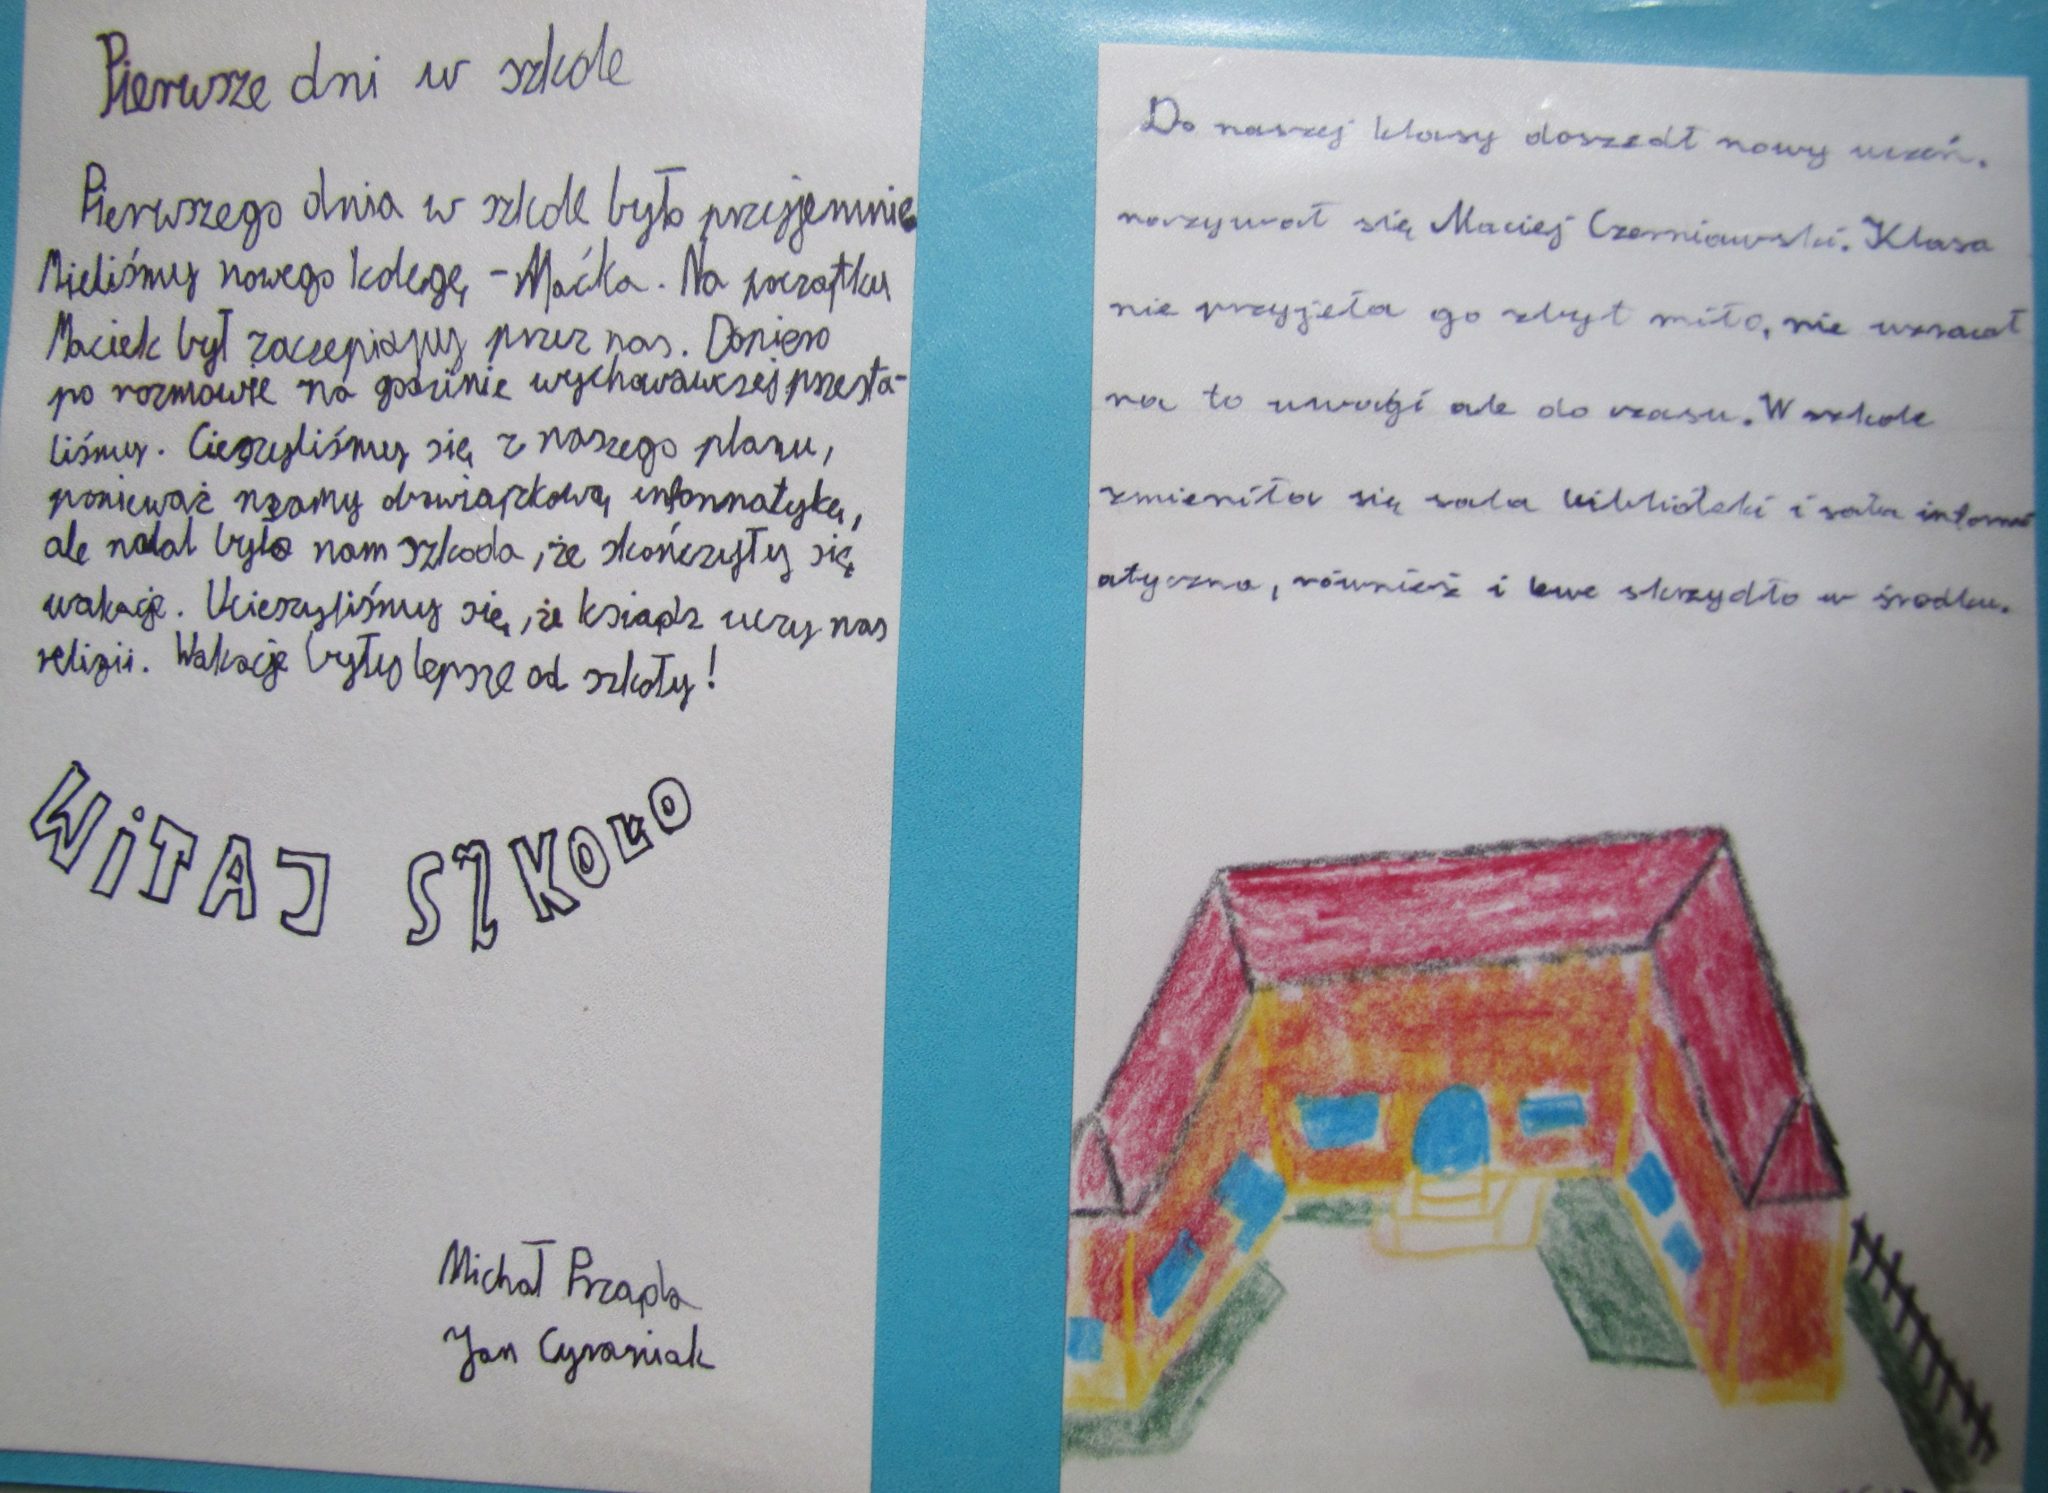 Pierwsze dni w szkole
Pierwszego dnia w szkole było przyjemnie.
Mieliśmy nowego kolegę, - Maćka. Na początku
Maciek był zaczepiany przez nas. Dopiero
po rozmowie na godzinie wychowawczej przesta-
liśmy. Cieszyliśmy się z naszego planu,
ponieważ mamy obowiązkową informatykę,
ale nadal było nam szkoda, że skończyły się
wakacje. Ucieszyliśmy się, że ksiądz uczy nas
religii. Wakacje były lepsze od szkoły!
WiTAJ SZKOŁO
Michał
Jan Cyraniak
Do naszej klasy doszedł nowy uczeń.
nazywał się Maciej Czerniawski. Klasa
nie przyjeła go zbyt miło, nie
na to uwagi ale do czasu. W szkole
zmieniła się sala biblioteki i sala inform
atyczna, również i lewe skrzydło w środku.